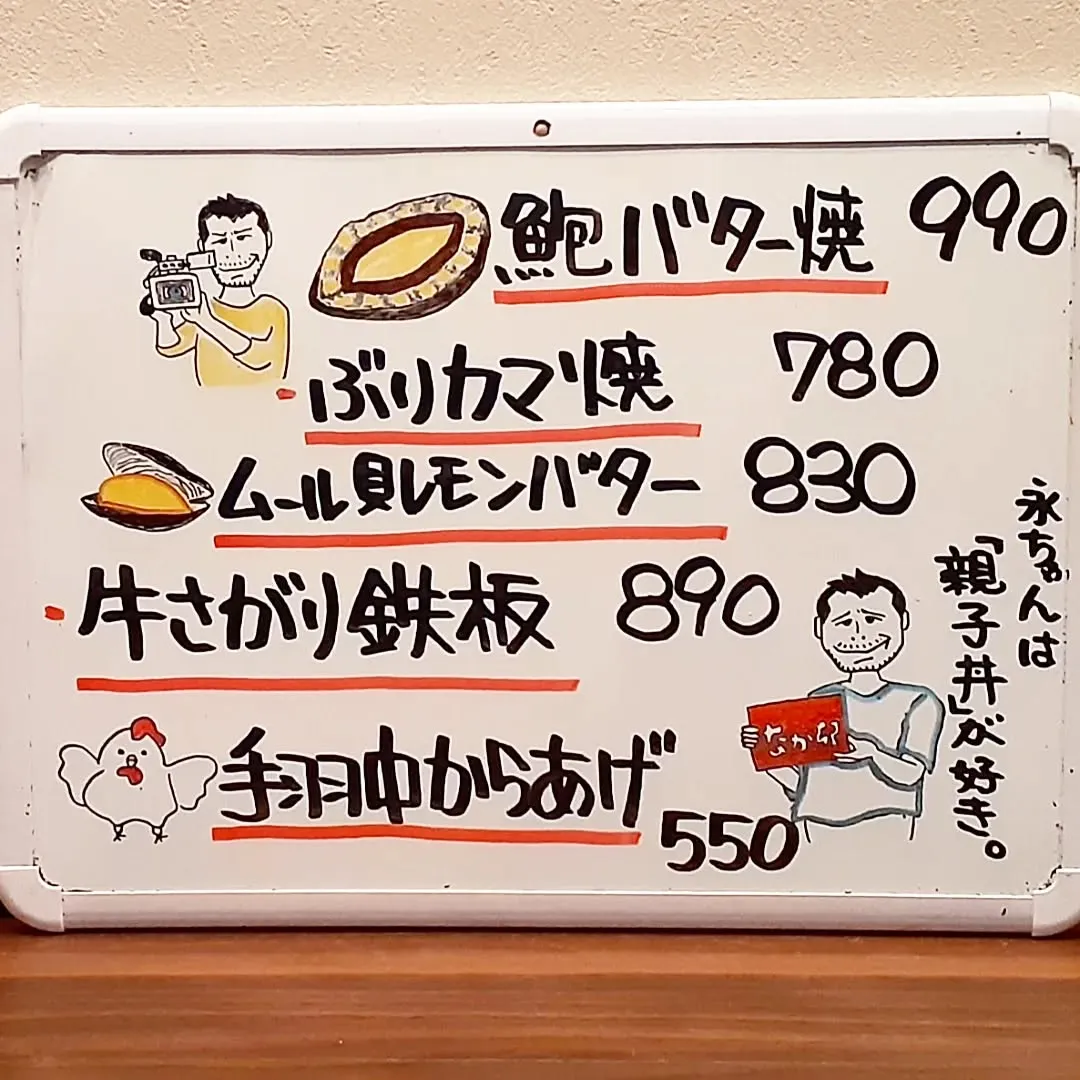 鮑バター焼 990
ぶりカマ焼 780
ムール貝レモンバター 830
牛さがり鉄板 890
手羽中からあげ 550
永ちゃんは
「親子丼」が好き。